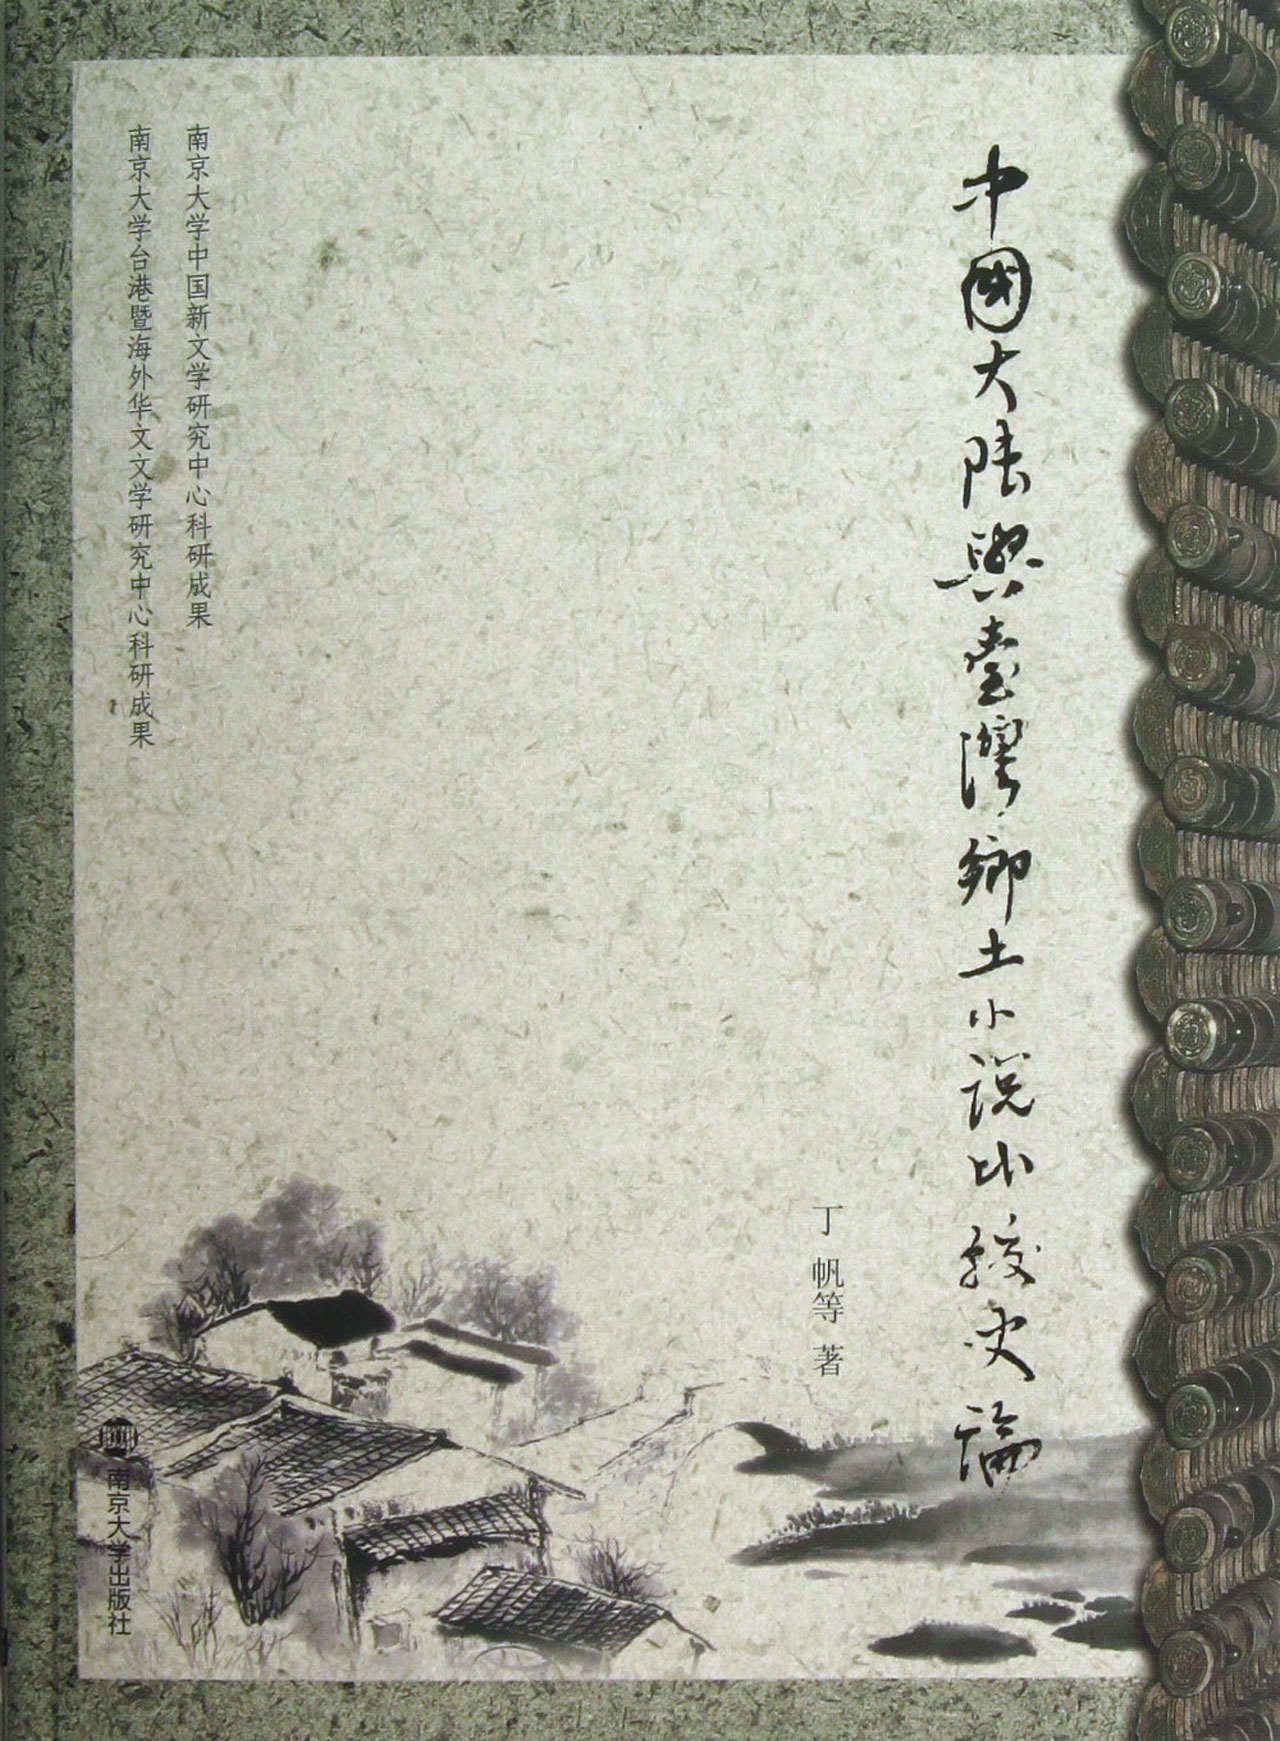 中國大陸與臺灣鄉土小説比較史論
丁帆等 著
南京大学中国新文学研究中心科研成果
南京大学台港暨海外华文文学研究中心科研成果
南京大学出版社